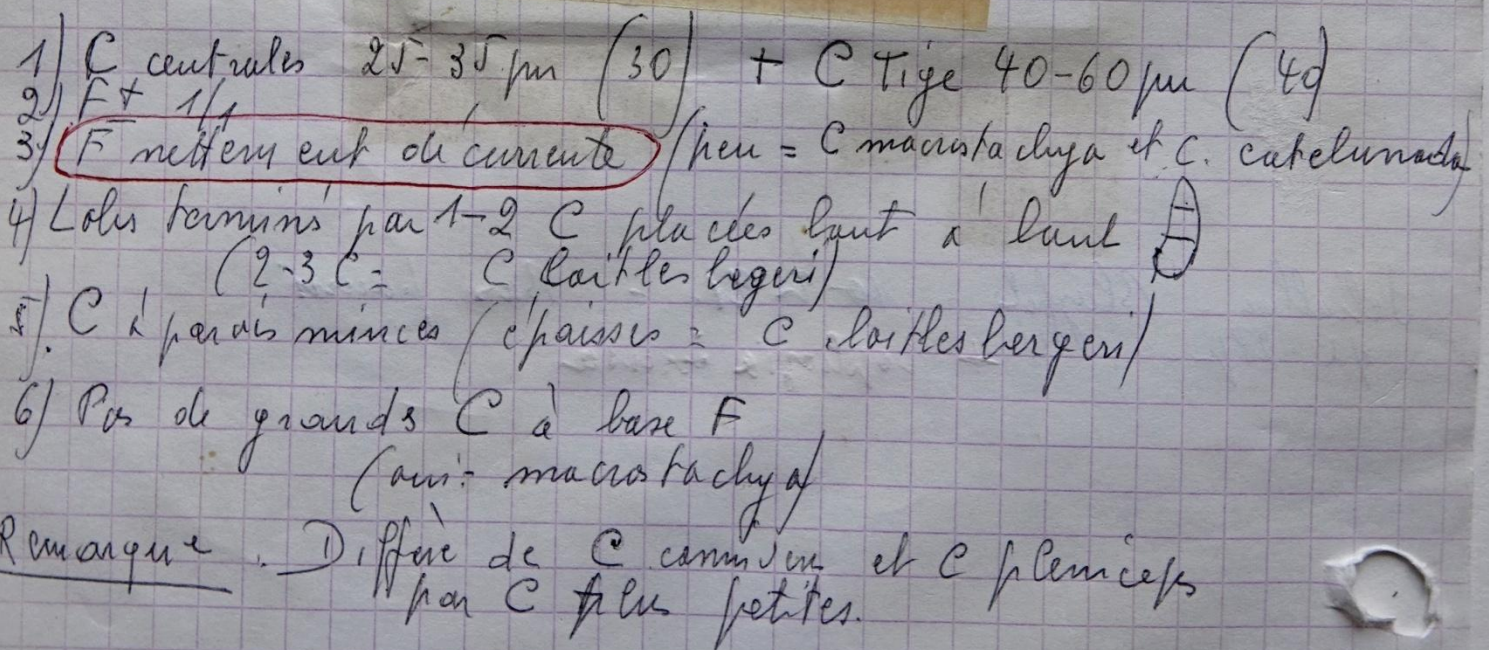 1) C centrales 25-35 µm (30) + C Tige 40-60 µm (40)
2) F ± 1/1
3) F nettement décurrente (peu = C macrostachya et C. catenulata)
4) Lobes terminés par 1-2 C placées bout à bout
(2-3 C = C loitlesbergeri)
5) C à parois minces (épaisses = C loitlesbergeri)
6) Pas de grands C à base F
(oui = macrostachya)
Remarque . Diffère de C connivens et C pleniceps
par C plus petites.